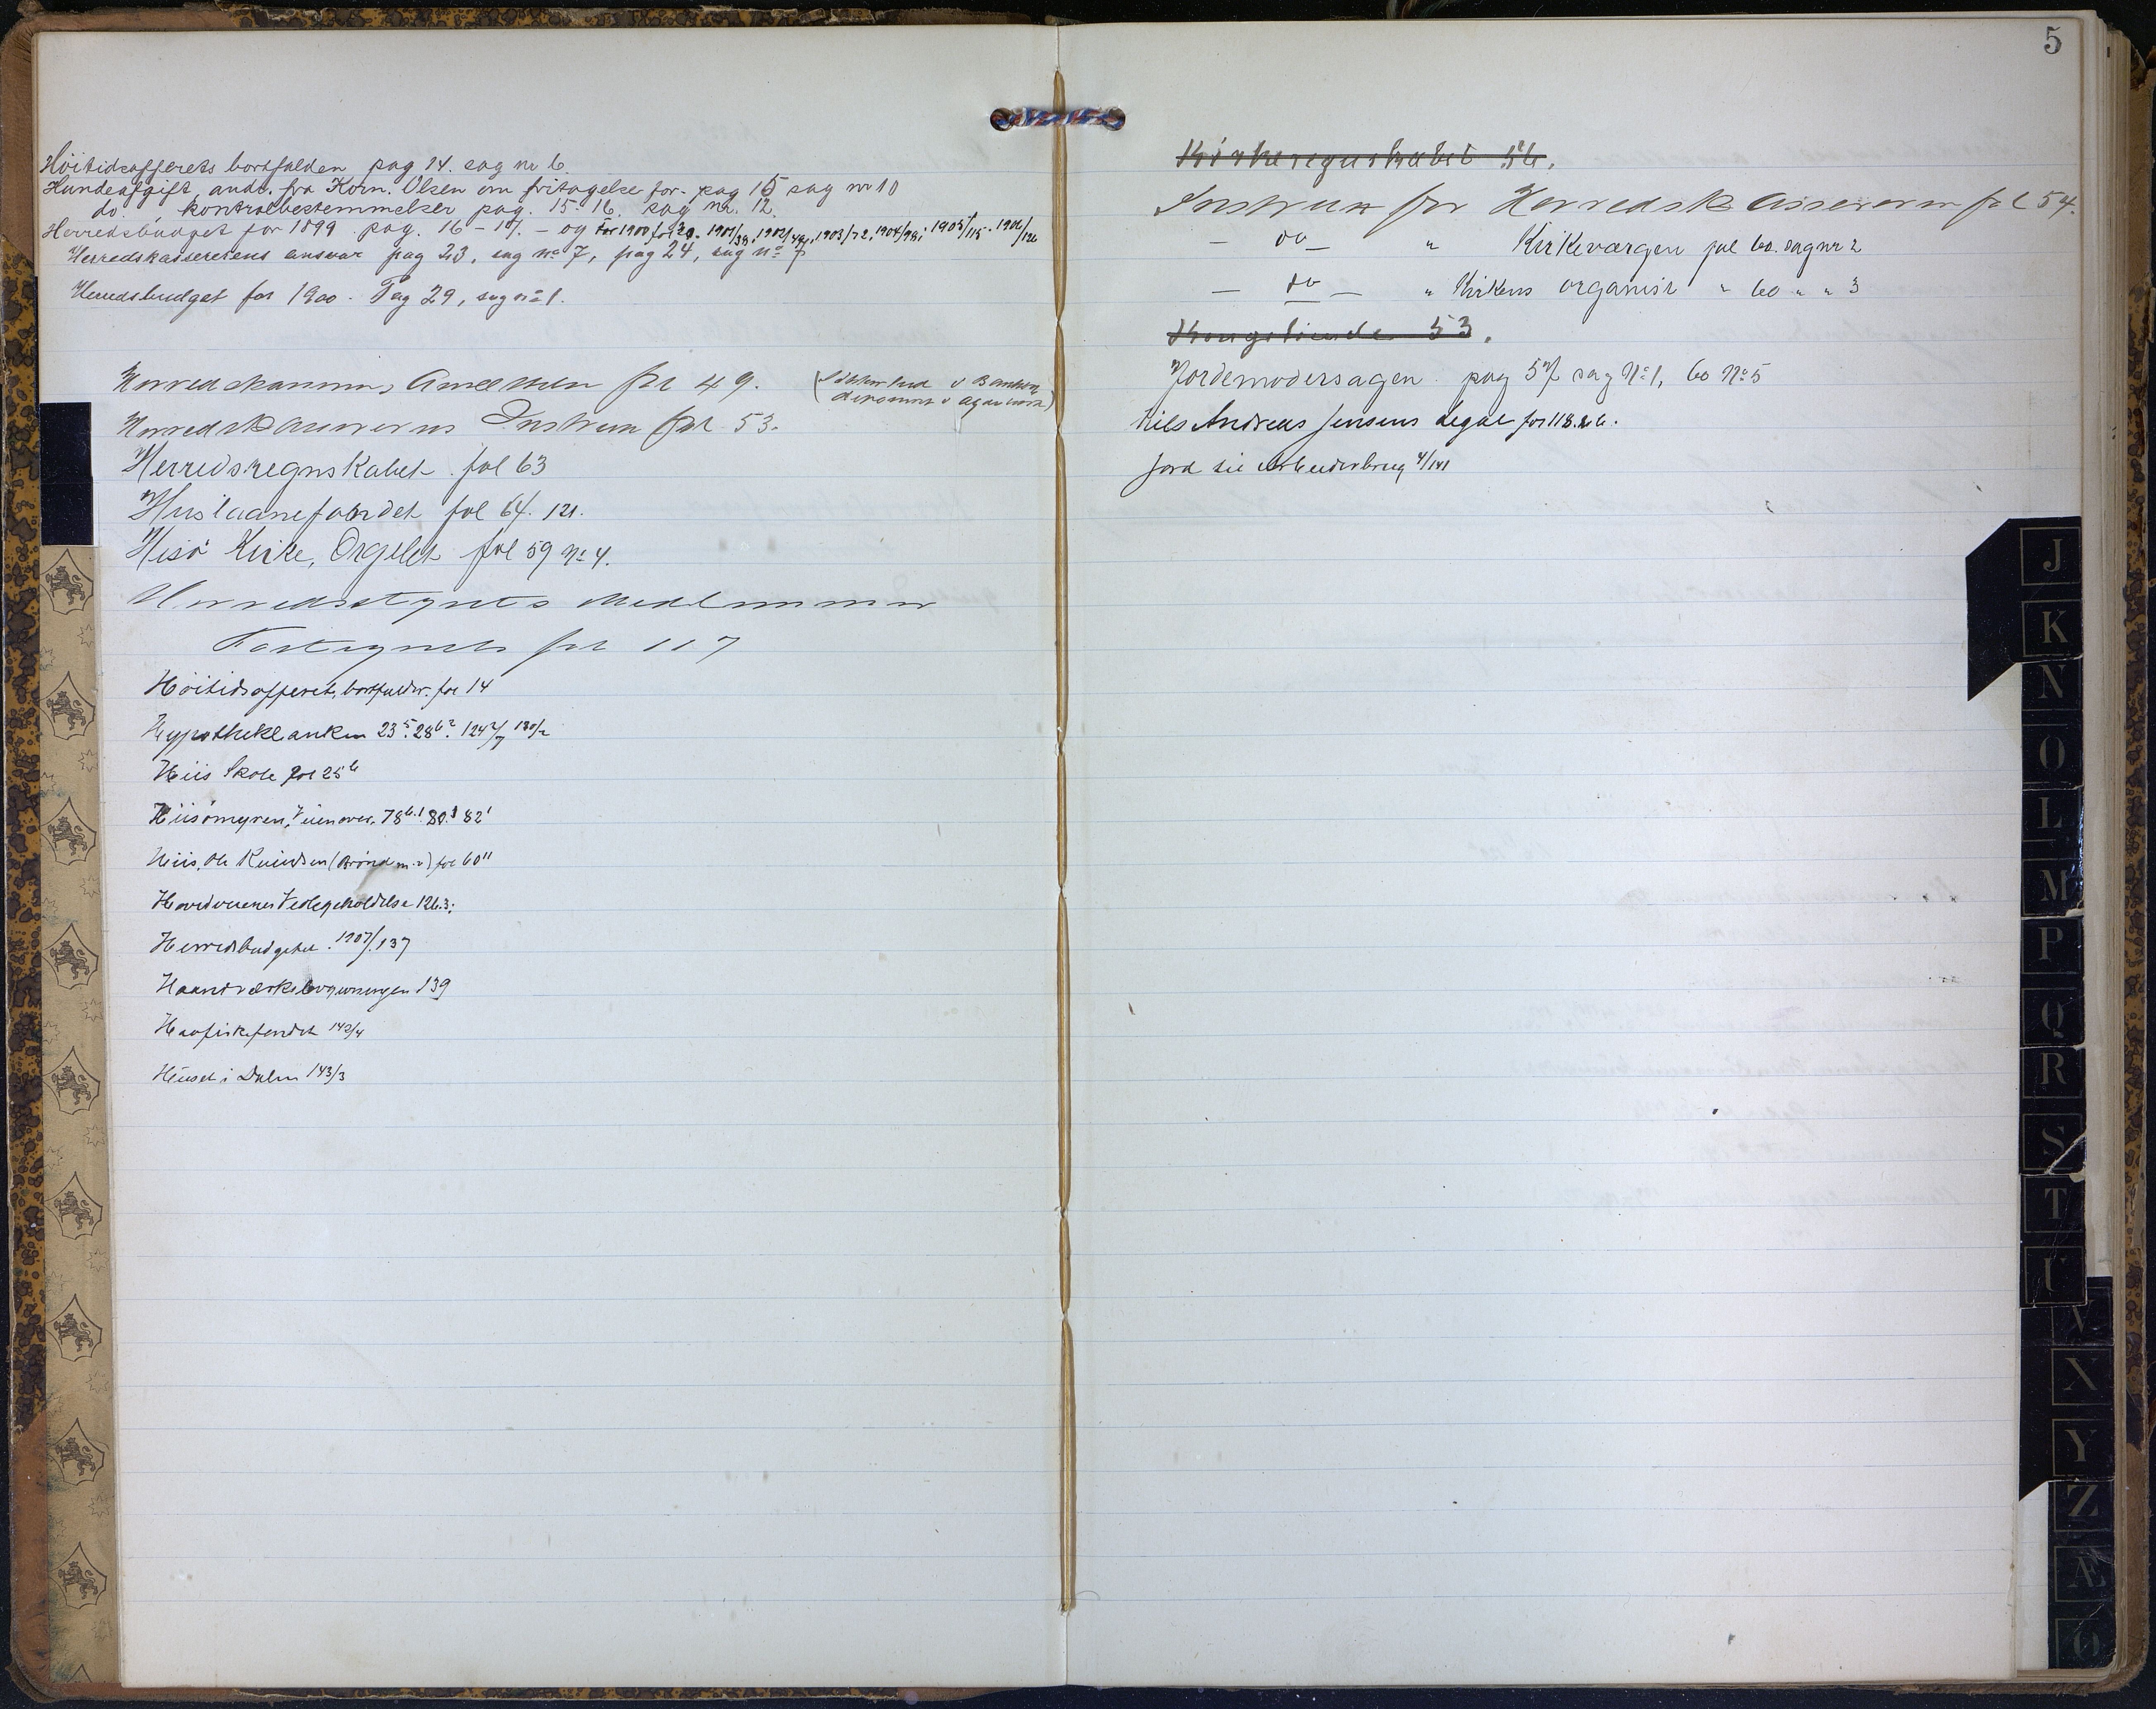 Höitidsofferets bortfalden pag 14. sag nr 6.
Hundeafgift, andr. fra Korn. Olsen om fritagelse for - pag 15 sag nr 10
do. , kontrolbestemmelser pag. 15-16. sag nr. 12.
Herredsbudget for 1899. pag. 16 - 17. - og for 1900 fol 29. 1901/38, 1902/48, 1903/72, 1904/98, 1905/115. 1906/126
Herredskassererens ansvar pag 23, sag no 7, pag 24, sag no 7
Herredsbudget for 1900. Pag 29, sag no 1.
Herredskassens fol 49.
Herredskassererens Instrux fol 53.
Herredsregnskabet fol 63
Huslaanefondet fol 64. 121.
Hisö Kirke, Orgelet fol 59 No 4.
Herredsstyrets Medlemmer
Fortegnels fol 117
Höitidsofferet, bortfalder. fol 14
Hypothekbanken 23⁵. 28⁶. 124/7 130/2
Hiis Skole fol 25⁶
Hiisömyren, Veien over, 78⁶. 80. 82¹
Hiis, Ole Knudsen (Brönd m.v) fol 60¹¹
Hovedveienes Vedlegeholdelse 126.3.
Herredsbudgetet. 1907/137
Haandværksloven 139
Havfiskefondet 142/4
Huset i Dalen 143/3
5
Kirkeregnskabet 56.
Instrux for Herredskassereren fol 54.
- do - " Kirkeværgen fol 60. sag nr 2
- do - " Kirkens organist " 60 " " 3
Kongetiende 53.
Jordemodersagen pag 57 sag No 1, 60 No 5
Nils Andreas Jensens Legat fol 118.
Jord til Arbeiderbrug 4/141
J
K
N
O
L
M
P
Q
R
S
T
U
V
X
Y
Z
Æ
Ø